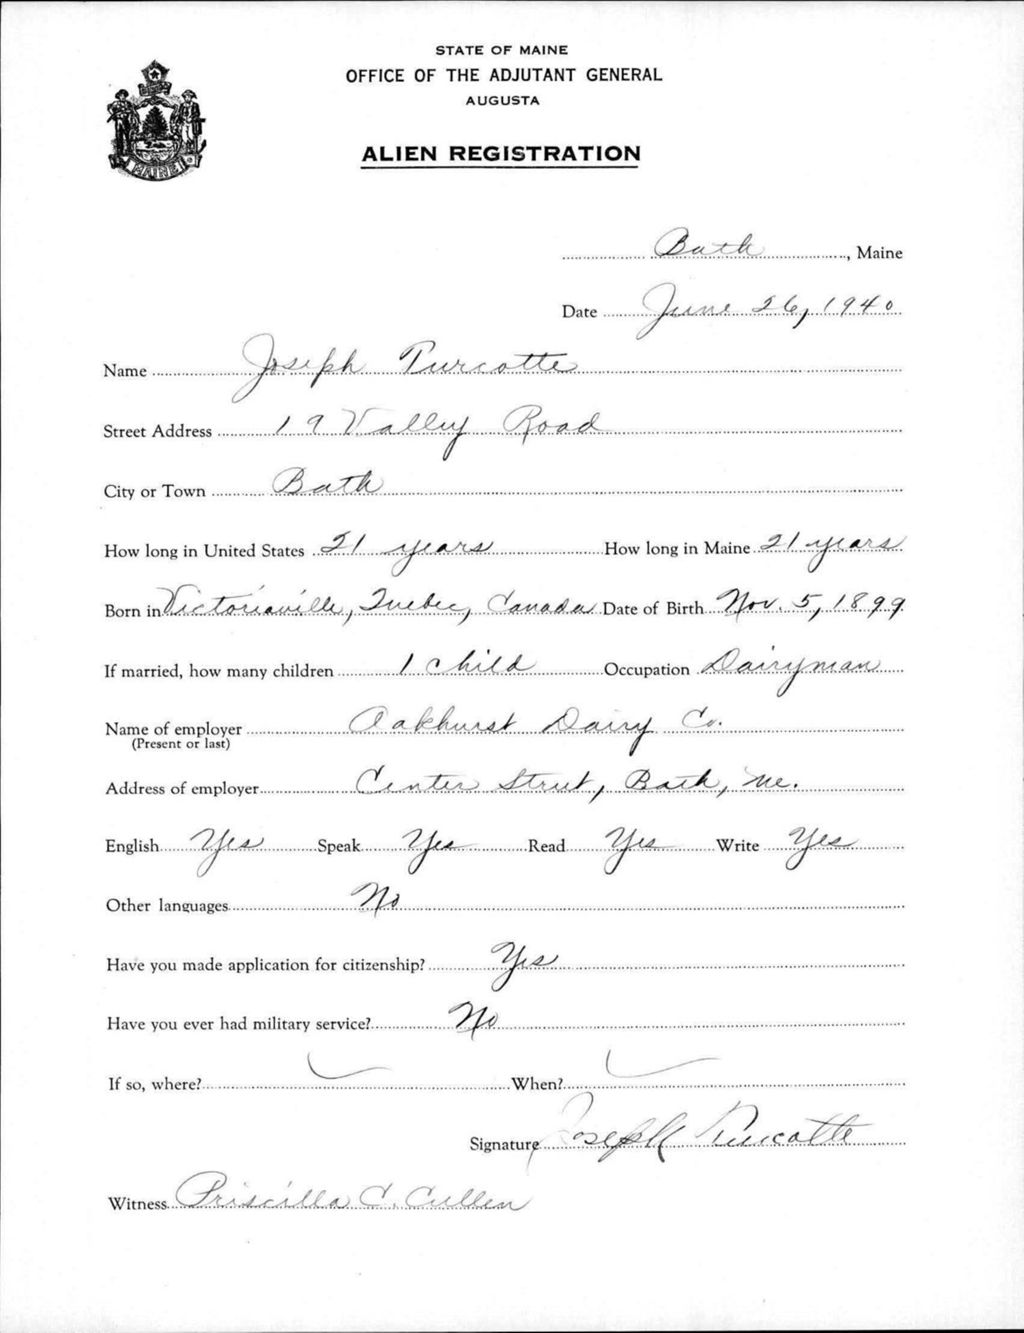 STATE OF MAINE
OFFICE OF THE ADJUTANT GENERAL
AUGUSTA
ALIEN REGISTRATION
MAINE
Bath, Maine
Date June 26, 1940
Name Joseph Turcotte
Street Address 19 Valley Road
City or Town Bath
How long in United States 21 years How long in Maine 21 years
Born in Victoriaville, Quebec, Canada Date of Birth Nov. 5, 1899
If married, how many children 1 child Occupation Dairyman
Name of employer Oakhurst Dairy Co.
(Present or last)
Address of employer Center Street, Bath, Me.
English Yes Speak Yes Read Yes Write Yes
Other languages No
Have you made application for citizenship? Yes
Have you ever had military service? No
If so, where? When?
Signature Joseph Turcotte
Witness Priscilla C. Cullen